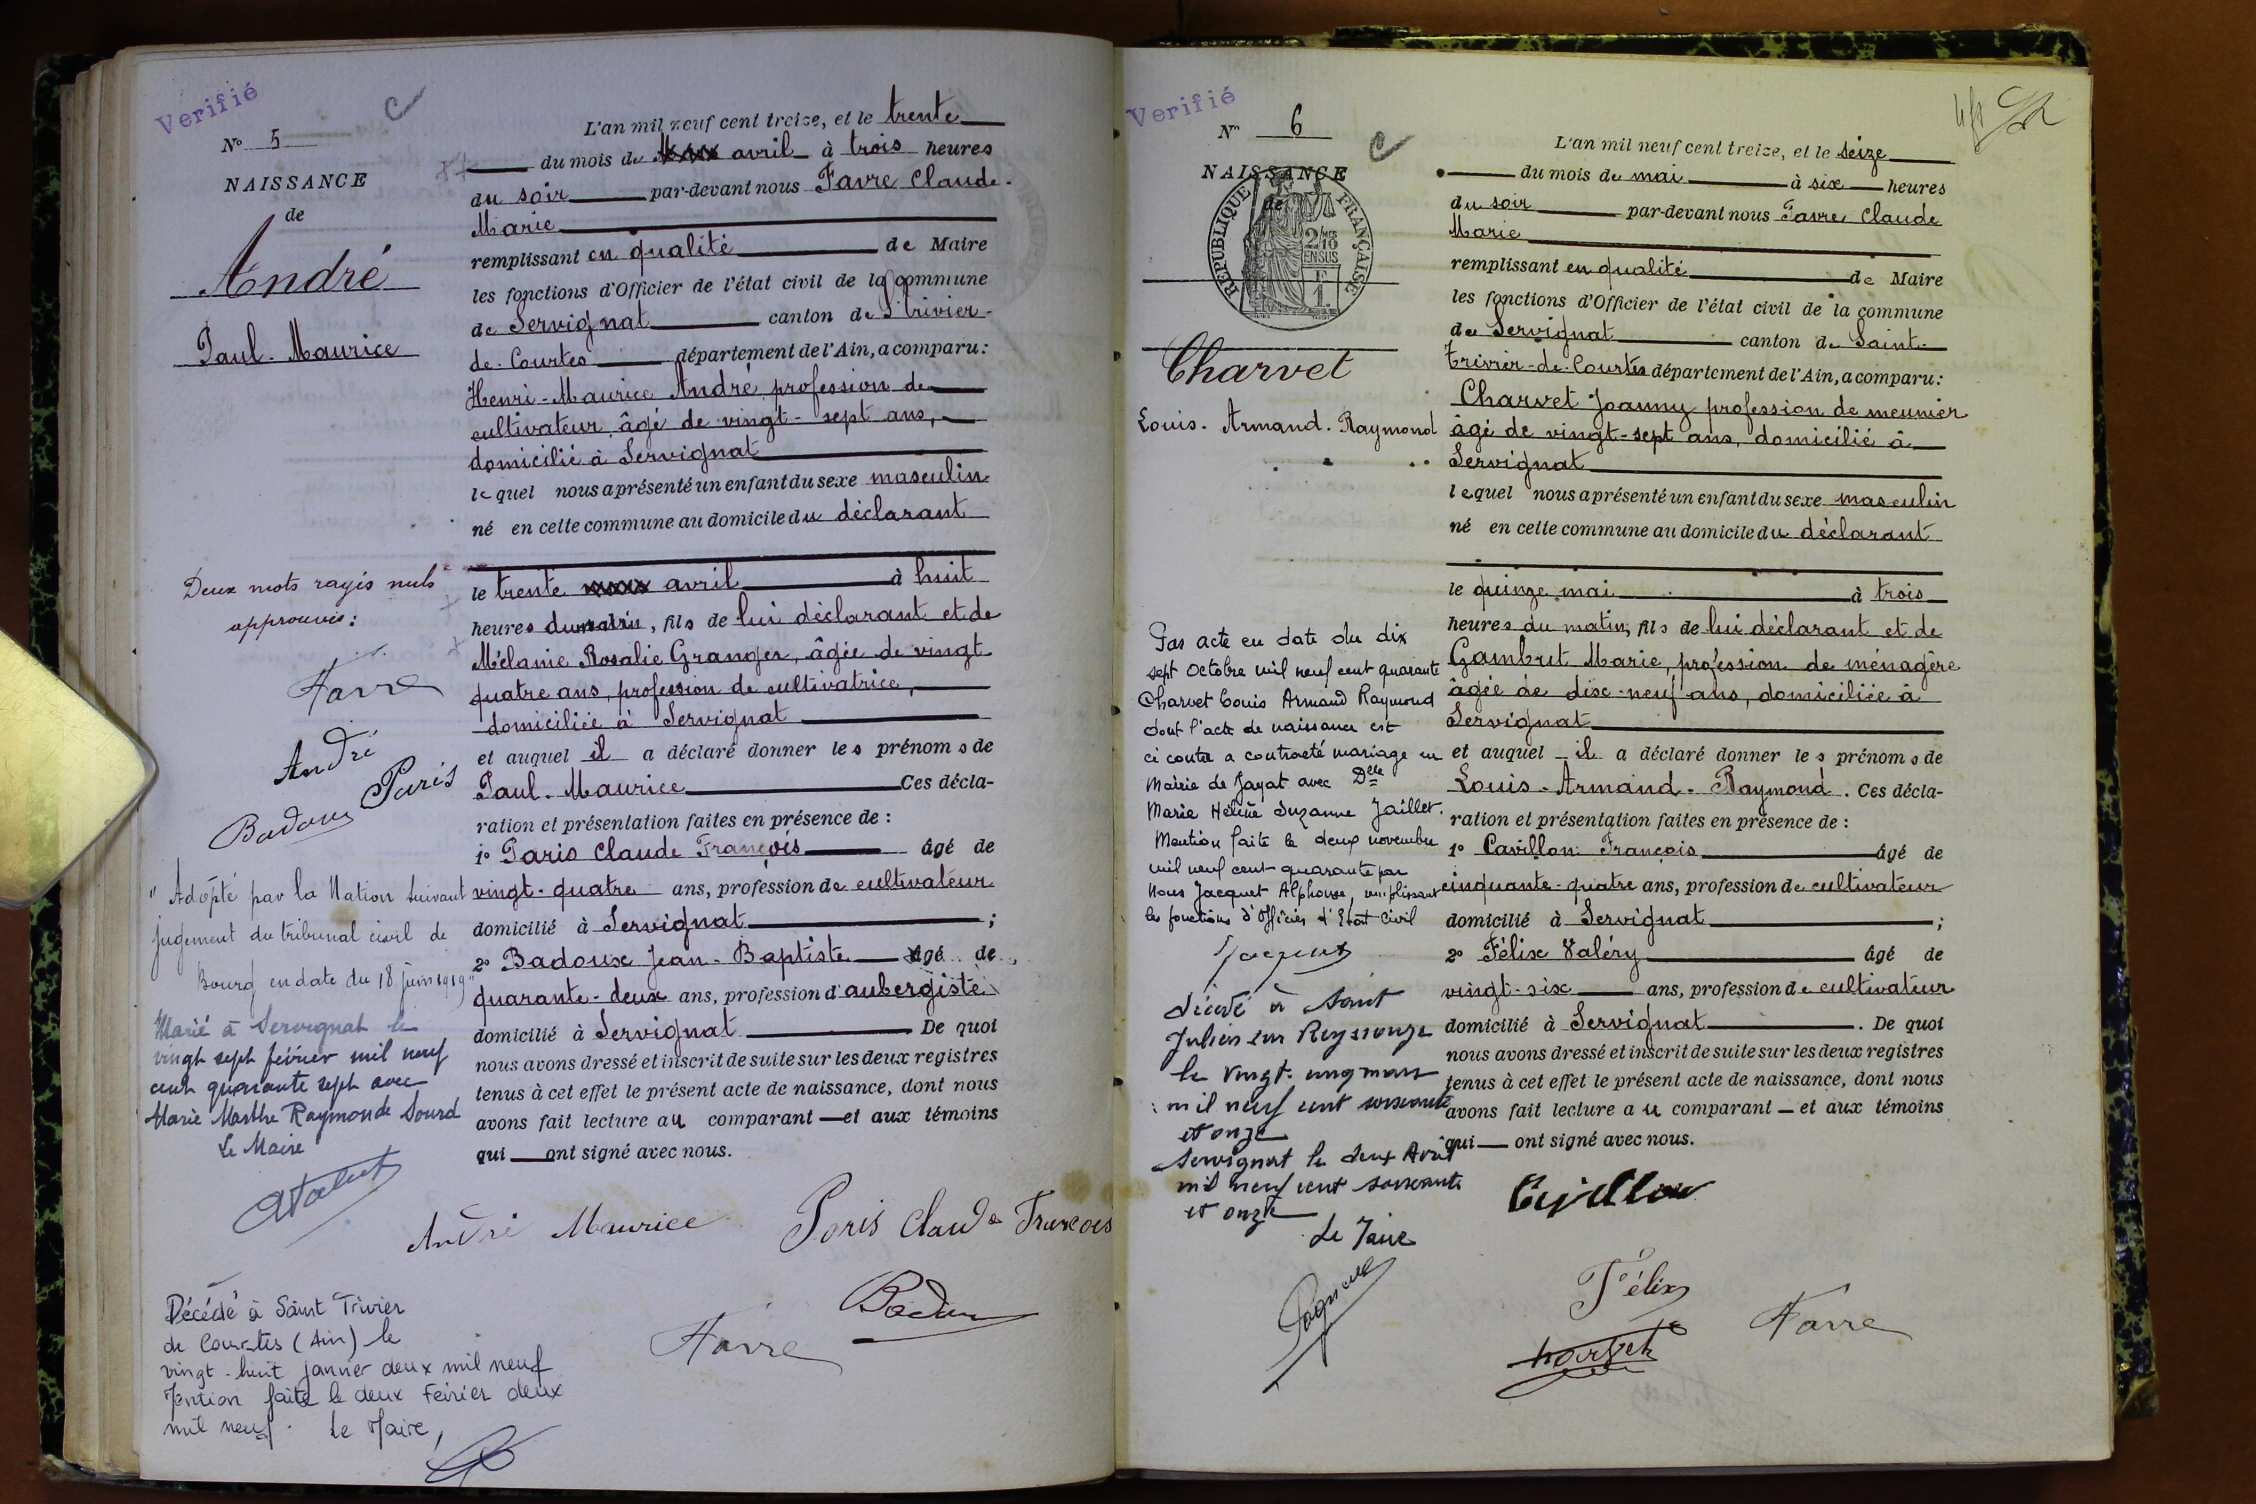 Verifié
C
N° 5
NAISSANCE
de
André
Paul-Maurice
L'an mil neuf cent treize, et le trente
du mois de avril à trois heures
du soir par-devant nous Favre Claude-
Marie
remplissant en qualité de Maire
les fonctions d'Officier de l'état civil de la commune
de Servignat canton de St Trivier-
de-Courtes département de l'Ain, a comparu:
Henri-Maurice André, profession de
cultivateur, âgé de vingt-sept ans,
domicilié à Servignat
lequel nous a présenté un enfant du sexe masculin
né en cette commune au domicile du déclarant
le trente avril à huit
heures du matin, fils de lui déclarant et de
Mélanie Rosalie Granger, âgée de vingt
quatre ans, profession de cultivatrice,
domiciliée à Servignat
et auquel il a déclaré donner les prénoms de
Paul-Maurice Ces décla-
ration et présentation faites en présence de :
1° Paris Claude François âgé de
vingt-quatre ans, profession de cultivateur
domicilié à Servignat ;
2° Badoux Jean-Baptiste âgé de
quarante-deux ans, profession d'aubergiste
domicilié à Servignat De quoi
nous avons dressé et inscrit de suite sur les deux registres
tenus à cet effet le présent acte de naissance, dont nous
avons fait lecture au comparant et aux témoins
qui ont signé avec nous.
André Maurice Paris Claude François
Favre Badoux
Deux mots rayés nuls
approuvés:
Favre
André
Paris
Badoux
"Adopté par la Nation suivant
jugement du tribunal civil de
Bourg en date du 18 juin 1919"
Marié à Servignat le
vingt sept février mil neuf
cent quarante sept avec
Marie Marthe Raymonde Sourd
Le Maire
Décédé à Saint Trivier
de Courtes (Ain) le
vingt-huit janvier deux mil neuf
Mention faite le deux Février deux
mil neuf. Le Maire,
Verifié
N° 6
C
NAISSANCE
de
REPUBLIQUE FRANÇAISE
2/10
EN SUS
F
1.
Charvet
Louis-Armand-Raymond
L'an mil neuf cent treize, et le seize
du mois de mai à six heures
du soir par-devant nous Favre Claude
Marie
remplissant en qualité de Maire
les fonctions d'Officier de l'état civil de la commune
de Servignat canton de Saint-
Trivier-de-Courtes département de l'Ain, a comparu:
Charvet Joanny profession de meunier
âgé de vingt-sept ans, domicilié à
Servignat
lequel nous a présenté un enfant du sexe masculin
né en cette commune au domicile du déclarant
le quinze mai à trois
heures du matin, fils de lui déclarant et de
Gambut Marie, profession de ménagère
âgée de dix-neuf ans, domiciliée à
Servignat
et auquel il a déclaré donner les prénoms de
Louis-Armand-Raymond. Ces décla-
ration et présentation faites en présence de :
1° Cavillon François âgé de
cinquante-quatre ans, profession de cultivateur
domicilié à Servignat ;
2° Félix Valéry âgé de
vingt-six ans, profession de cultivateur
domicilié à Servignat. De quoi
nous avons dressé et inscrit de suite sur les deux registres
tenus à cet effet le présent acte de naissance, dont nous
avons fait lecture au comparant et aux témoins
qui ont signé avec nous.
Félix
Favre
Charvet
Par acte en date du dix
sept Octobre mil neuf cent quarante
Charvet Louis Armand Raymond
dont l'acte de naissance est
ci contre a contracté mariage en
Mairie de Jayat avec Delle
Marie Hélène Suzanne Jaillet.
Mention faite le deux novembre
mil neuf cent quarante par
Nous Jacquet Alphonse, remplissant
les fonctions d'Officier d'Etat Civil
Jacquet
décédé à Saint
Julien sur Reyssouze
le Vingt-un mars
mil neuf cent soixante
et onze
Servignat le deux Avril
mil neuf cent soixante
et onze
Le Maire